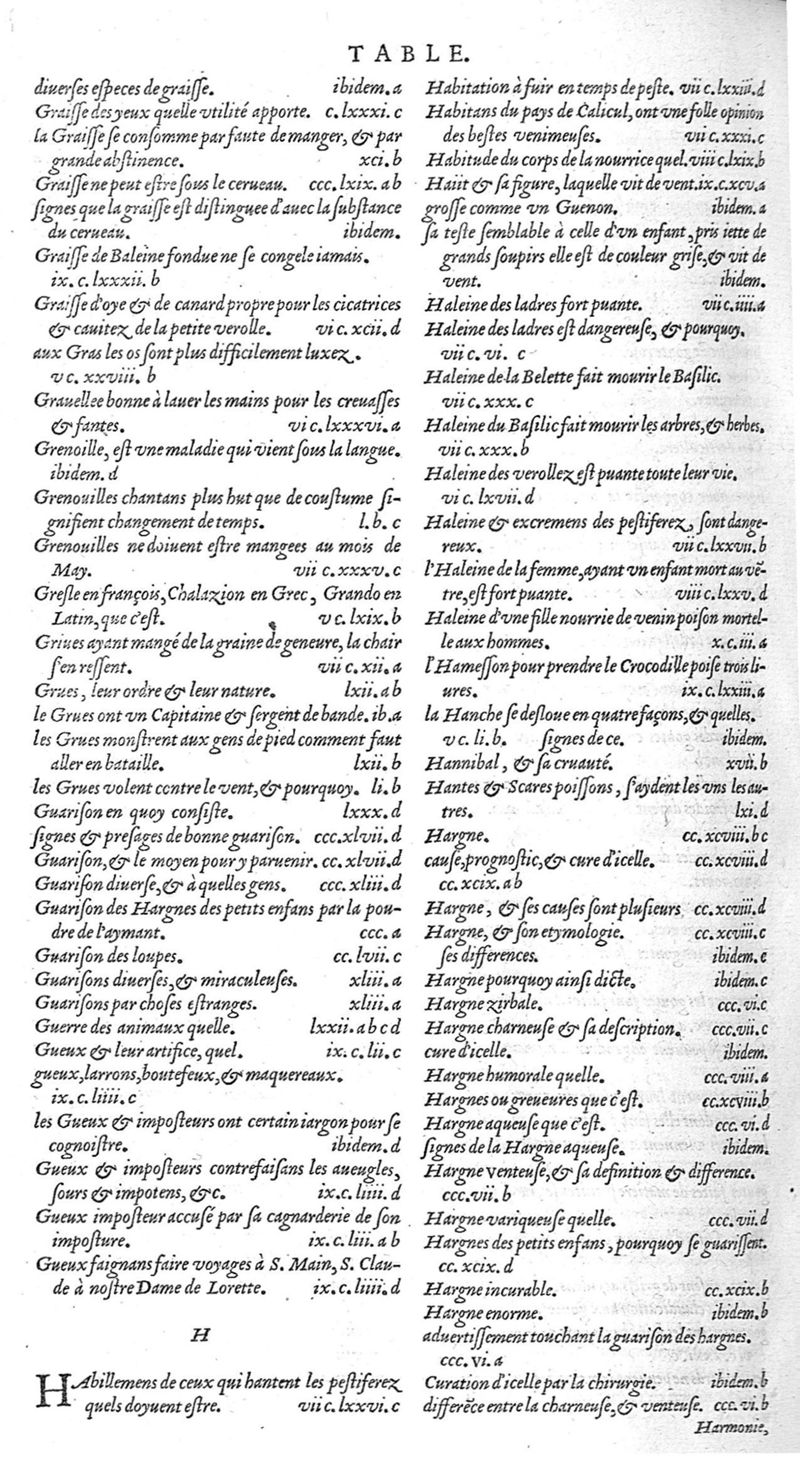 TABLE.
diuerses especes de graisse. ibidem.a
Graisse des yeux quelle vtilité apporte. c.lxxxi.c
la Graisse se consomme par faute de manger, & par
grande abstinence. xci.b
Graisse ne peut estre sous le cerueau. ccc.lxix.ab
signes que la graisse est distinguee d'auec la substance
du cerueau. ibidem.
Graisse de Baleine fondue ne se congele iamais.
ix.c.lxxxii.b
Graisse d'oye & de canard propre pour les cicatrices
& cauitez de la petite verolle. vi c.xcii.d
aux Gras les os sont plus difficilement luxez.
v c.xxviii.b
Grauellee bonne à lauer les mains pour les creuasses
& fantes. vi c.lxxxvi.a
Grenoille, est vne maladie qui vient sous la langue.
ibidem.d
Grenouilles chantans plus hut que de coustume si-
gnifient changement de temps. l.b.c
Grenouilles ne doiuent estre mangees au mois de
May. vii c.xxxv.c
Gresle en françois, Chalazion en Grec, Grando en
Latin, que c'est. v c.lxix.b
Griues ayant mangé de la graine de geneure, la chair
s'en ressent. vii c.xii.a
Grues, leur ordre & leur nature. lxii.ab
le Grues ont vn Capitaine & sergent de bande. ib.a
les Grues monstrent aux gens de pied comment faut
aller en bataille. lxii.b
les Grues volent contre le vent, & pourquoy. li.b
Guarison en quoy consiste. lxxx.d
signes & presages de bonne guarison. ccc.xlvii.d
Guarison, & le moyen pour y paruenir. cc.xlvii.d
Guarison diuerse, & à quelles gens. ccc.xliii.d
Guarison des Hargnes des petits enfans par la pou-
dre de l'aymant. ccc.a
Guarison des loupes. cc.lvii.c
Guarisons diuerses, & miraculeuses. xliii.a
Guarisons par choses estranges. xliii.a
Guerre des animaux quelle. lxxii.abcd
Gueux & leur artifice, quel. ix.c.lii.c
gueux, larrons, boutefeux, & maquereaux.
ix.c.liiii.c
les Gueux & imposteurs ont certain iargon pour se
cognoistre. ibidem.d
Gueux & imposteurs contrefaisans les aueugles,
sours & impotens, &c. ix.c.liiii.d
Gueux imposteur accusé par sa cagnarderie de son
imposture. ix.c.liii.ab
Gueux faignans faire voyages à S. Main, S. Clau-
de à nostre Dame de Lorette. ix.c.liiii.d
H
HAbillemens de ceux qui hantent les pestiferez
quels doyuent estre. vii c.lxxvi.c
Habitation à fuir en temps de peste. vii c.lxxiii.d
Habitans du pays de Calicul, ont vne folle opinion
des bestes venimeuses. vii c.xxxi.c
Habitude du corps de la nourrice quel. viii c.lxix.b
Haiit & sa figure, laquelle vit de vent. ix.c.xcv.a
grosse comme vn Guenon. ibidem.a
sa teste semblable à celle d'vn enfant, pris iette de
grands soupirs elle est de couleur grise, & vit de
vent. ibidem.
Haleine des ladres fort puante. vii c.iiii.a
Haleine des ladres est dangereuse, & pourquoy.
vii c.vi. c
Haleine de la Belette fait mourir le Basilic.
vii c.xxx.c
Haleine du Basilic fait mourir les arbres, & herbes.
vii c.xxx.b
Haleine des verollez est puante toute leur vie.
vi c.lxvii.d
Haleine & excremens des pestiferez, sont dange-
reux. vii c.lxxvii.b
l'Haleine de la femme, ayant vn enfant mort au vẽ-
tre, est fort puante. viii c.lxxv.d
Haleine d'vne fille nourrie de venin poison mortel-
le aux hommes. x.c.iii.a
l'Hamesson pour prendre le Crocodille poise trois li-
ures. ix.c.lxxiii.a
la Hanche se desloue en quatre façons, & quelles.
v c.li.b. signes de ce. ibidem.
Hannibal, & sa cruauté. xvii.b
Hantes & Scares poissons, s'aydent les vns les au-
tres. lxi.d
Hargne. cc.xcviii.bc
cause, prognostic, & cure d'icelle. cc.xcviii.d
cc.xcix.ab
Hargne, & ses causes sont plusieurs cc.xcviii.d
Hargne, & son etymologie. cc.xcviii.c
ses differences. ibidem.c
Hargne pourquoy ainsi dicte. ibidem.c
Hargne zirbale. ccc.vi.c
Hargne charneuse & sa description. ccc.vii.c
cure d'icelle. ibidem.
Hargne humorale quelle. ccc.viii.a
Hargnes ou greueures que c'est. cc.xcviii.b
Hargne aqueuse que c'est. ccc.vi.d
signes de la Hargne aqueuse. ibidem.
Hargne venteuse, & sa definition & difference.
ccc.vii.b
Hargne variqueuse quelle. ccc.vii.d
Hargnes des petits enfans, pourquoy se guarissent.
cc.xcix.d
Hargne incurable. cc.xcix.b
Hargne enorme. ibidem.b
aduertissement touchant la guarison des hargnes.
ccc.vi.a
Curation d'icelle par la chirurgie. ibidem.b
differẽce entre la charneuse, & venteuse. ccc.vi.b
Harmonie,